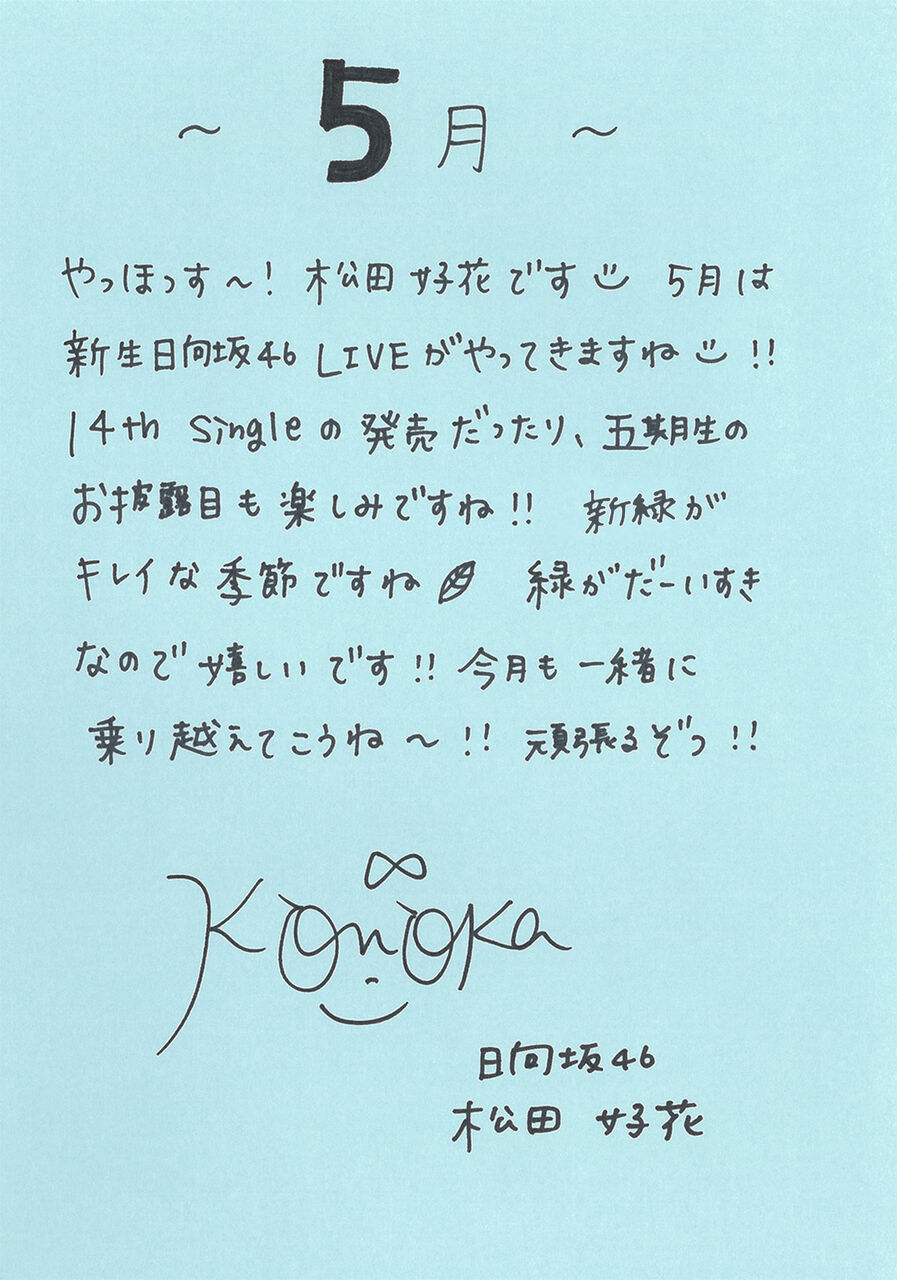 ～ 5月 ～
やっほっす〜! 松田 好花です 5月は
新生日向坂46 LIVEがやってきますね !!
14th Singleの発売だったり、五期生の
お披露目も楽しみですね!! 新緑が
キレイな季節ですね 緑がだーいすき
なので嬉しいです!! 今月も一緒に
乗り越えてこうね〜!! 頑張るぞっ!!
Konoka
日向坂46
松田 好花